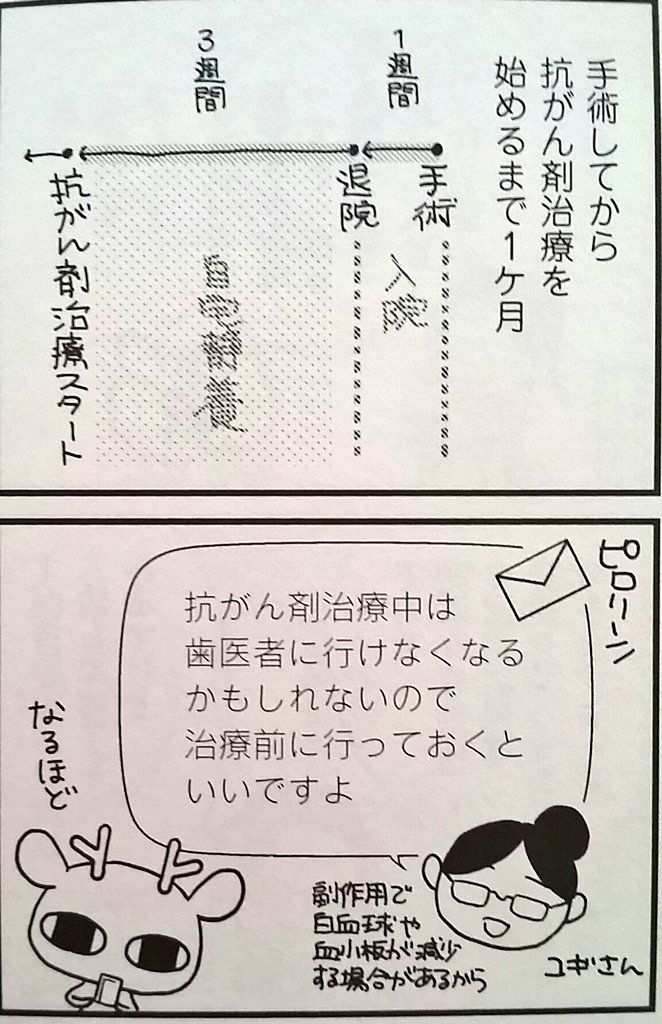 手術してから
抗がん剤治療を
始めるまで1ケ月
1週間
3週間
手術
入院
退院
自宅静養
抗がん剤治療スタート
ピロリーン
抗がん剤治療中は
歯医者に行けなくなる
かもしれないので
治療前に行っておくと
いいですよ
副作用で
白血球や
血小板が減少
する場合があるから
ユギさん
なるほど